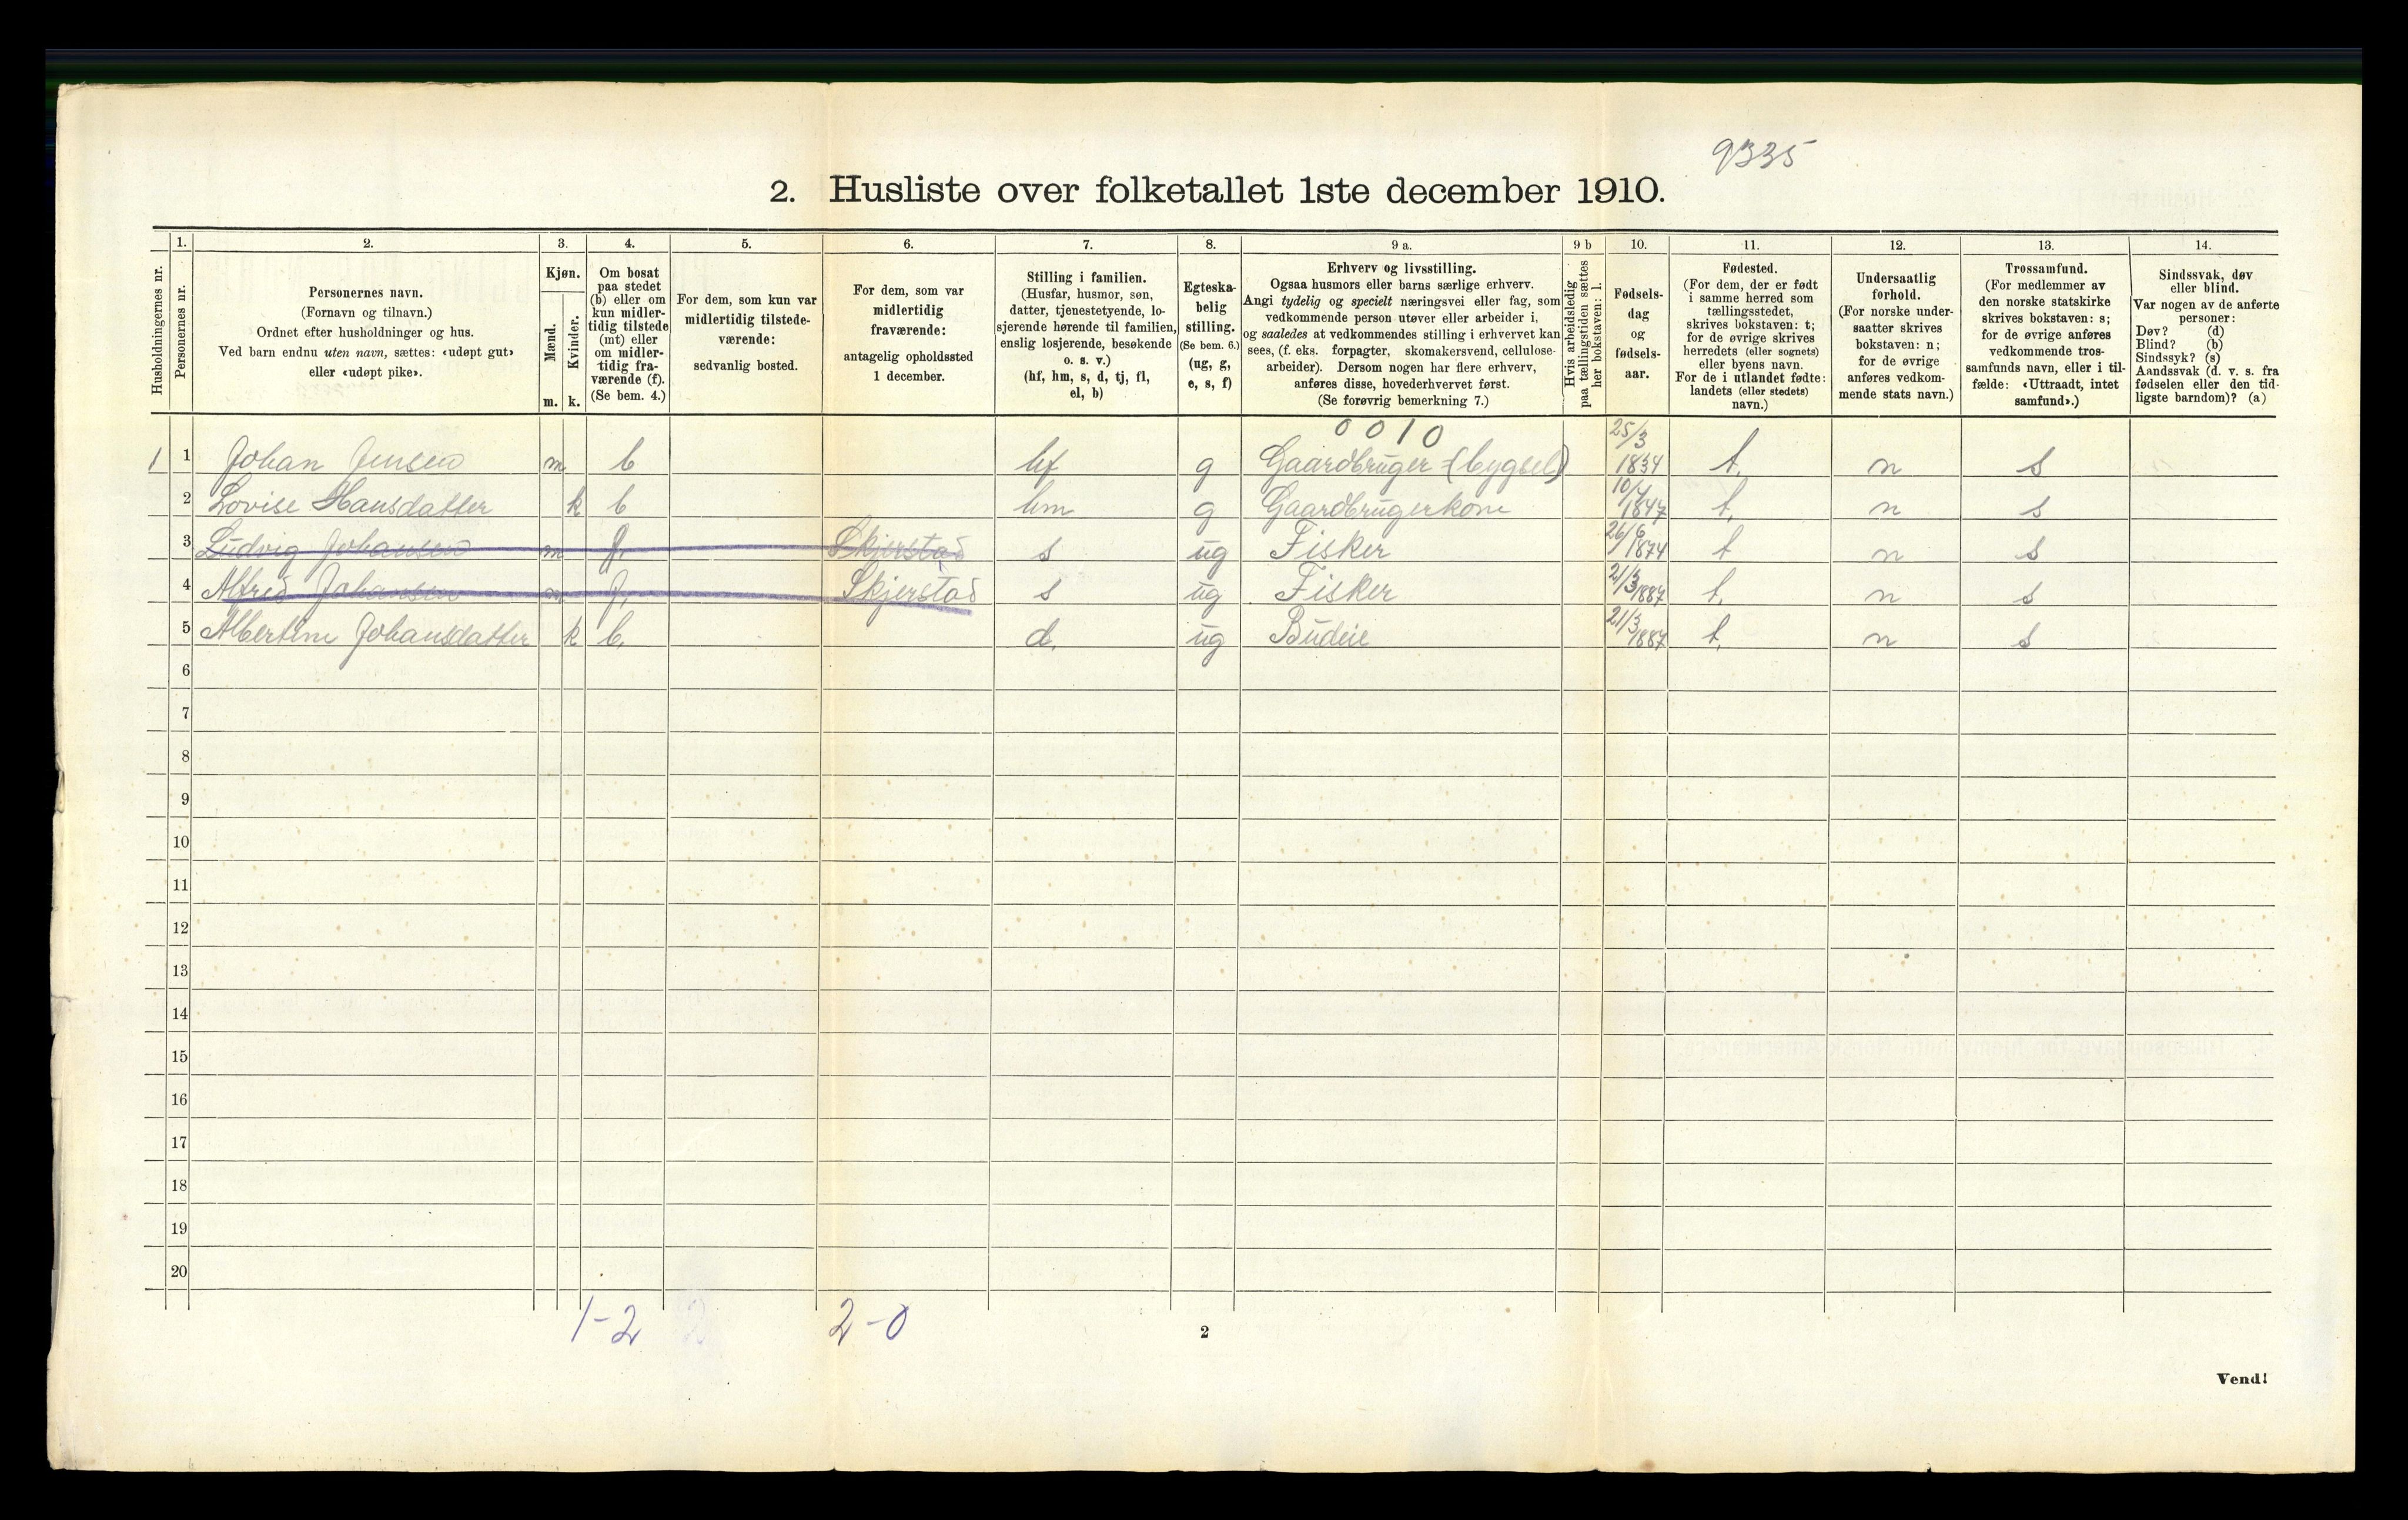 9335
2. Husliste over folketallet 1ste december 1910.
Husholdningernes nr.
1.
Personernes nr.
2.
Personernes navn.
(Fornavn og tilnavn.)
Ordnet efter husholdninger og hus.
Ved barn endnu uten navn, sættes: «udøpt gut»
eller «udøpt pike».
3.
Kjøn.
Mænd.
Kvinder.
m. k.
4.
Om bosat
paa stedet
(b) eller om
kun midler-
tidig tilstede
(mt) eller
om midler-
tidig fra-
værende (f).
(Se bem. 4.)
5.
For dem, som kun var
midlertidig tilstede-
værende:
sedvanlig bosted.
6.
For dem, som var
midlertidig
fraværende:
antagelig opholdssted
1 december.
7.
Stilling i familien.
(Husfar, husmor, søn,
datter, tjenestetyende, lo-
sjerende hørende til familien,
enslig losjerende, besøkende
o. s. v.)
(hf, hm, s, d, tj, fl,
el, b)
8.
Egteska-
belig
stilling.
(Se bem. 6.)
(ug, g,
e, s, f)
9 a.
Erhverv og livsstilling.
Ogsaa husmors eller barns særlige erhverv.
Angi tydelig og specielt næringsvei eller fag, som
vedkommende person utøver eller arbeider i,
og saaledes at vedkommendes stilling i erhvervet kan
sees, (f. eks. forpagter, skomakersvend, cellulose-
arbeider). Dersom nogen har flere erhverv,
anføres disse, hovederhvervet først.
(Se forøvrig bemerkning 7.)
9 b
Hvis arbeidsledig
paa tællingstiden sættes
her bokstaven: l.
10.
Fødsels-
dag
og
fødsels-
aar.
11.
Fødested.
(For dem, der er født
i samme herred som
tællingsstedet,
skrives bokstaven: t;
for de øvrige skrives
herredets (eller sognets)
eller byens navn.
For de i utlandet fødte:
landets (eller stedets)
navn.)
12.
Undersaatlig
forhold.
(For norske under-
saatter skrives
bokstaven: n;
for de øvrige
anføres vedkom-
mende stats navn.)
13.
Trossamfund.
(For medlemmer av
den norske statskirke
skrives bokstaven: s;
for de øvrige anføres
vedkommende tros-
samfunds navn, eller i til-
fælde: «Uttraadt, intet
samfund».)
14.
Sindssvak, døv
eller blind.
Var nogen av de anførte
personer:
Døv? (d)
Blind? (b)
Sindssyk? (s)
Aandssvak (d. v. s. fra
fødselen eller den tid-
ligste barndom)? (a)
0010
1 1 Johan Jensen m b hf g Gaardbruger (bygsel) 25/3 1834 t. n s
2 Lovise Hansdatter k b hm g Gaardbrugerkone 10/4 1847 t. n s
3 Ludvig Johansen m f. Skjerstad s ug Fisker 26/6 1874 t n s
4 Alfred Johansen m f. Skjerstad s ug Fisker 21/3 1887 t. n s
5 Albertine Johansdatter k b. d. ug Budeie 21/3 1887 t. n s
6
7
8
9
10
11
12
13
14
15
16
17
18
19
20
1-2 2-0
2
Vend!